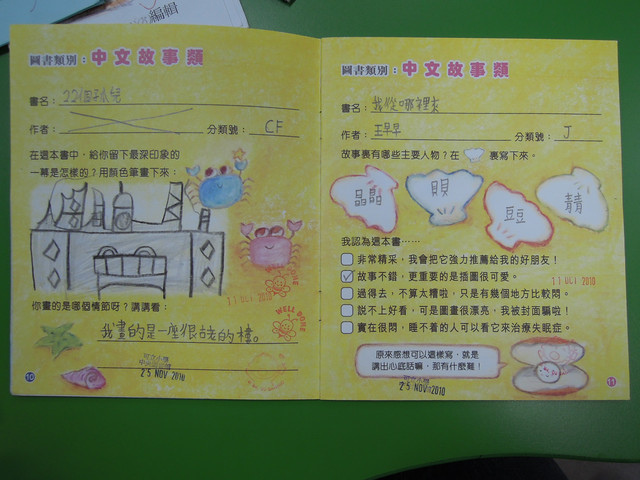 編輯
圖書類別：中文故事類
書名：
作者：
分類號：CF
在這本書中，給你留下最深印象的
一幕是怎樣的？用顏色筆畫下來：
你畫的是哪個情節呀？講講看：
我畫的是一座很古老的樓。
WELL DONE
25 NOV 2010
10
圖書類別：中文故事類
書名：我從哪裡來
作者：王早早
分類號：J
故事裏有哪些主要人物？在
裏寫下來。
晶晶
貝貝
豆豆
青青
我認為這本書……
非常精采，我會把它強力推薦給我的好朋友！
故事不錯，更重要的是插圖很可愛。
11 OCT 2010
過得去，不算太糟啦，只是有幾個地方比較悶。
說不上好看，可是圖畫很漂亮，我被封面騙啦！
實在很悶，睡不着的人可以看它來治療失眠症。
原來感想可以這樣寫，就是
講出心底話嘛，那有什麼難！
25 NOV 2010
11